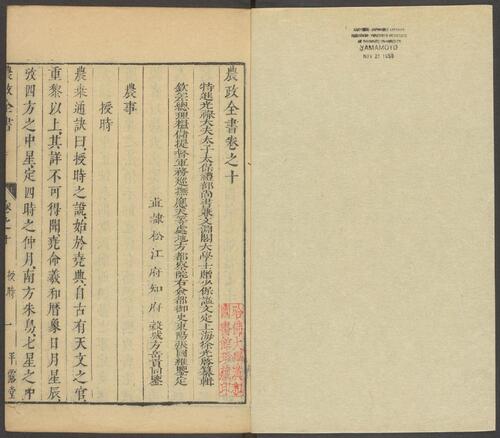 YAMAMOTO
農政全書卷之十
特進光祿大夫太子太保禮部尚書兼文淵閣大學士贈少保謚文定上海徐光啓纂輯
欽差總理糧儲提督軍務巡撫應天等處地方都察院右僉都御史東陽張國維鑒定
直隸松江府知府穀城方岳貢同鑒
農事
授時
農桒通訣曰授時之說始於堯典自古有天文之官
重黎以上其詳不可得聞堯命羲和曆象日月星辰
攷四方之中星定四時之仲月南方朱鳥七星之中
農政全書
卷之十
授時
一
平露堂